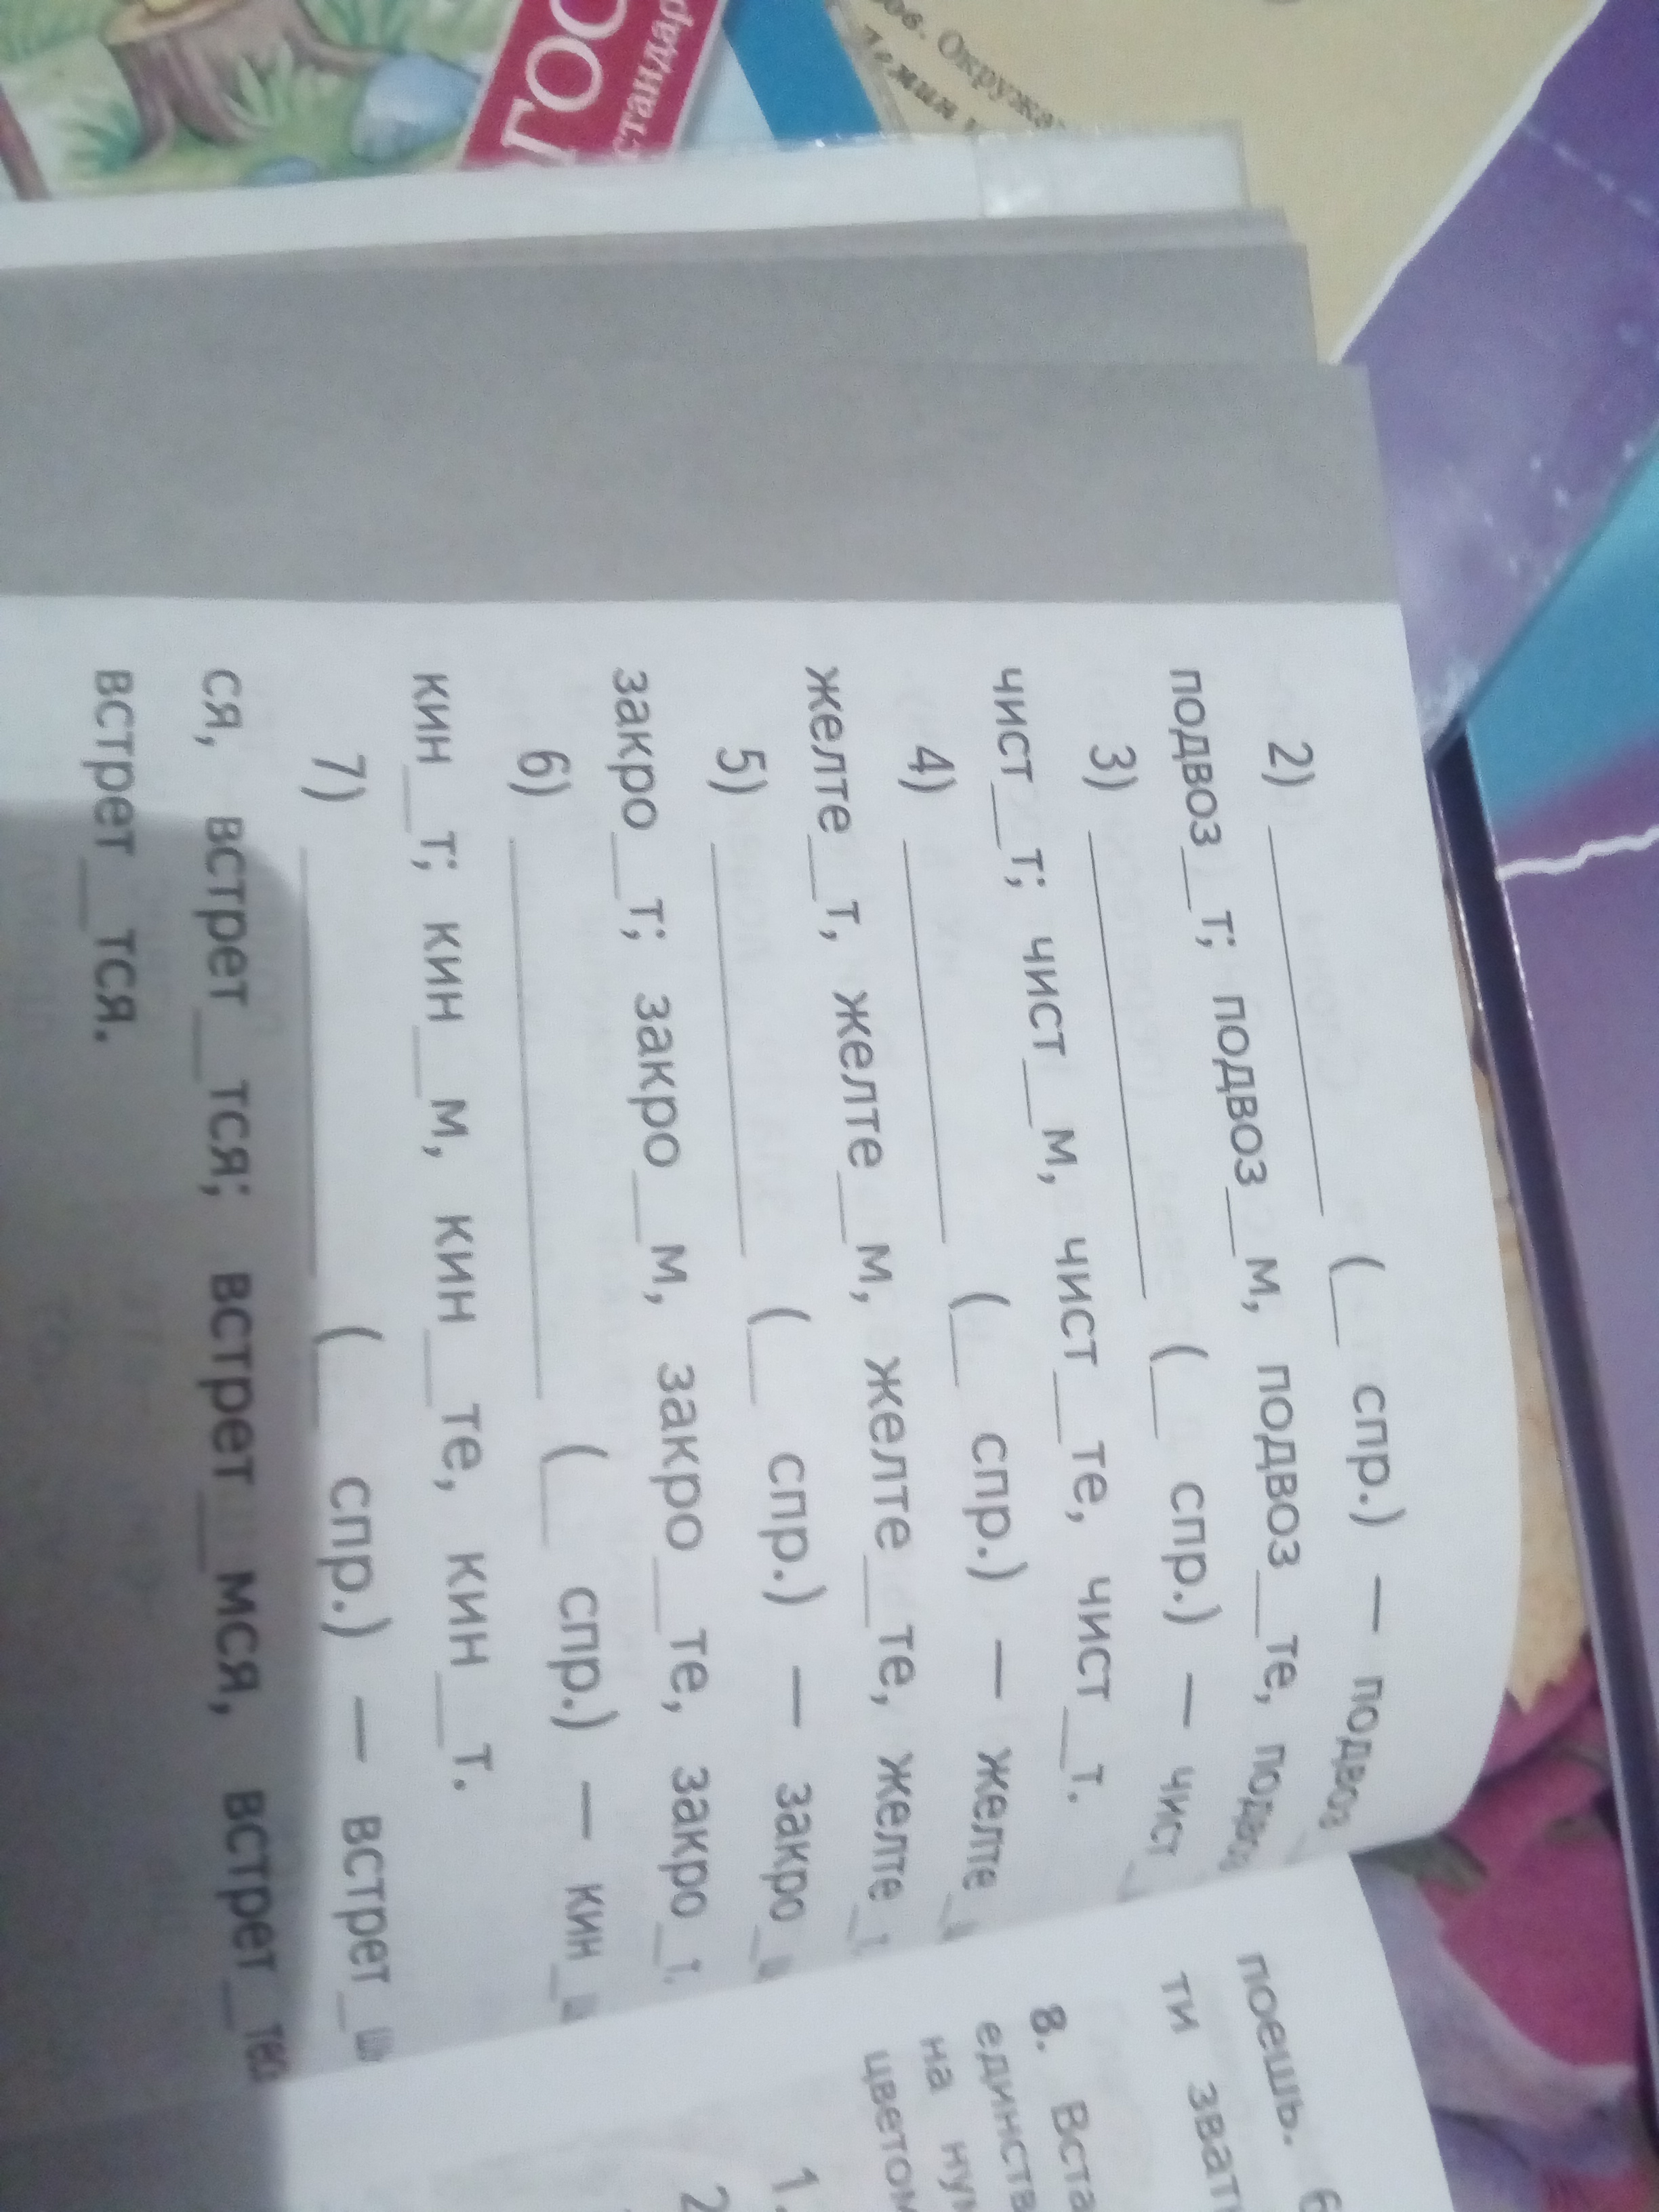 2) ____ (__ спр.) — подвоз
подвоз__т; подвоз__м, подвоз__те, подвоз
3) ____ (__ спр.) — чист_
чист__т; чист__м, чист__те, чист__т.
4) ____ (__ спр.) — желте_
желте__т, желте__м, желте__те, желте_т
5) ____ (__ спр.) — закро_
закро__т; закро__м, закро__те, закро_т
6) ____ (__ спр.) — кин_
кин__т; кин__м, кин__те, кин__т.
7) ____ (__ спр.) — встрет_ш
ся, встрет__тся; встрет__мся, встрет_тесь
встрет__тся.
поешь. 6
ти звать
8. Вста
единств
на нуж
цветом
1.
2
ГОС
стандар
ов. Окружа